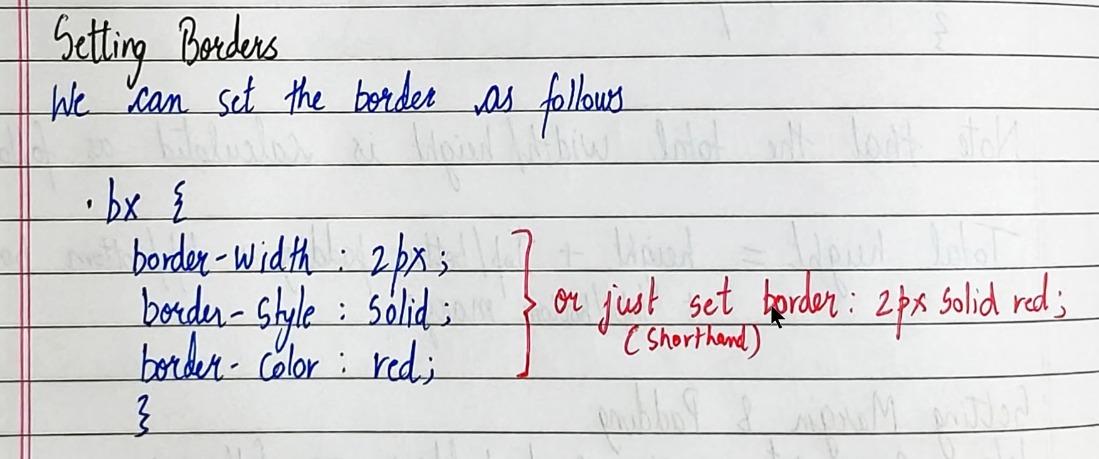 Setting Borders
We can set the border as follows
.bx {
border-width : 2px;
border-style : solid;
border-color : red;
}
or just set border: 2px solid red;
(Shorthand)